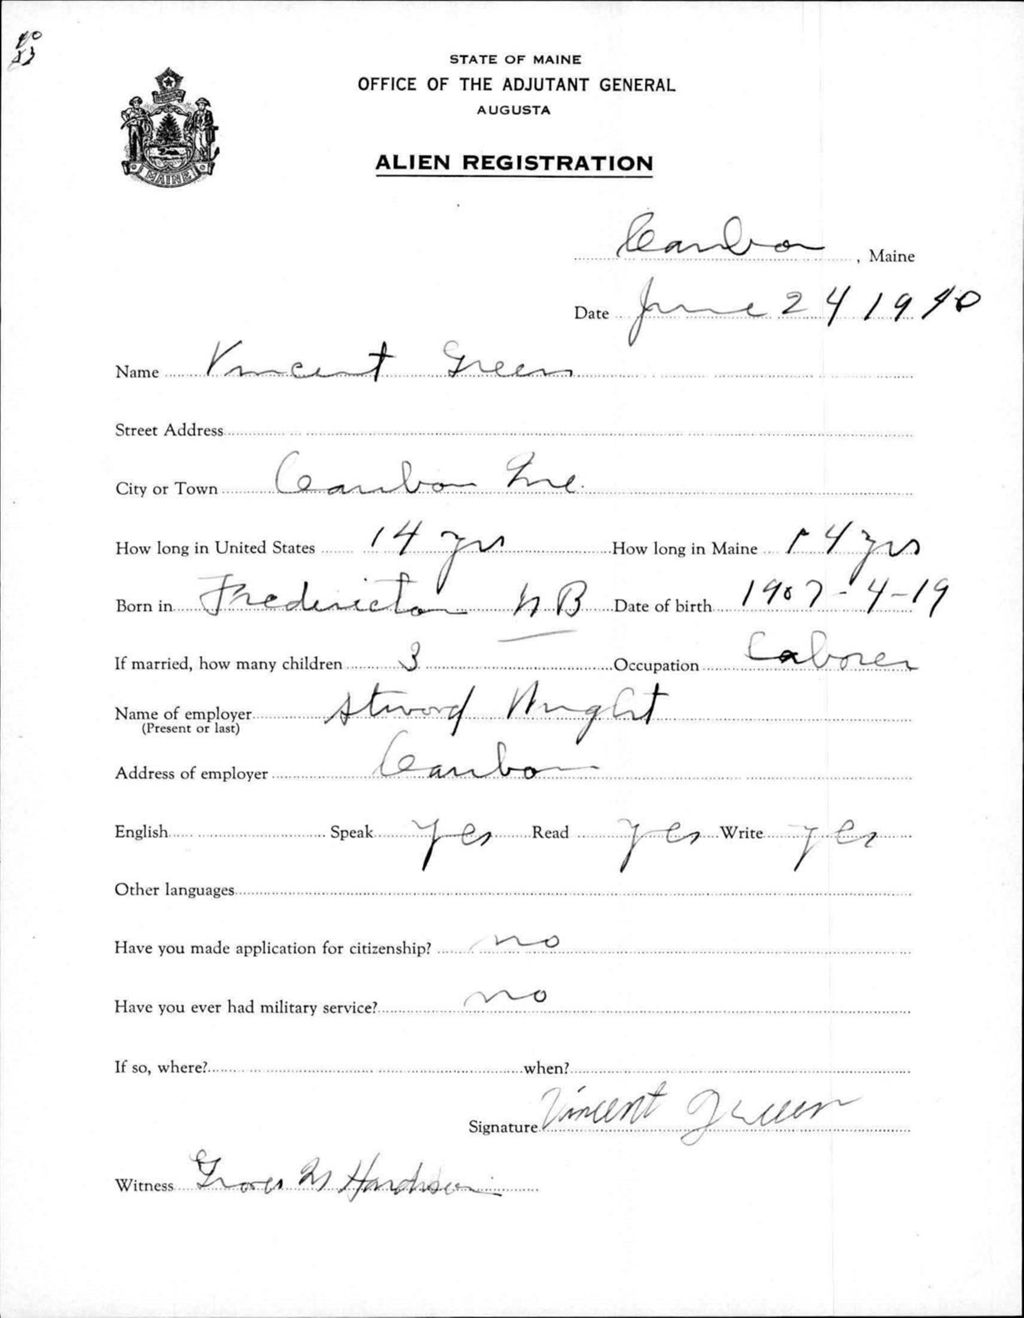 STATE OF MAINE
OFFICE OF THE ADJUTANT GENERAL
AUGUSTA
MAINE
ALIEN REGISTRATION
Caribou, Maine
Date June 24 1940
Name Vincent Green
Street Address
City or Town Caribou Me.
How long in United States 14 yrs How long in Maine 14 yrs
Born in Fredericton N B Date of birth 1907-4-19
If married, how many children 3 Occupation Laborer
Name of employer Wright
(Present or last)
Address of employer Caribou
English Speak yes Read yes Write yes
Other languages
Have you made application for citizenship? no
Have you ever had military service? no
If so, where? when?
Signature Vincent Green
Witness M Hardison